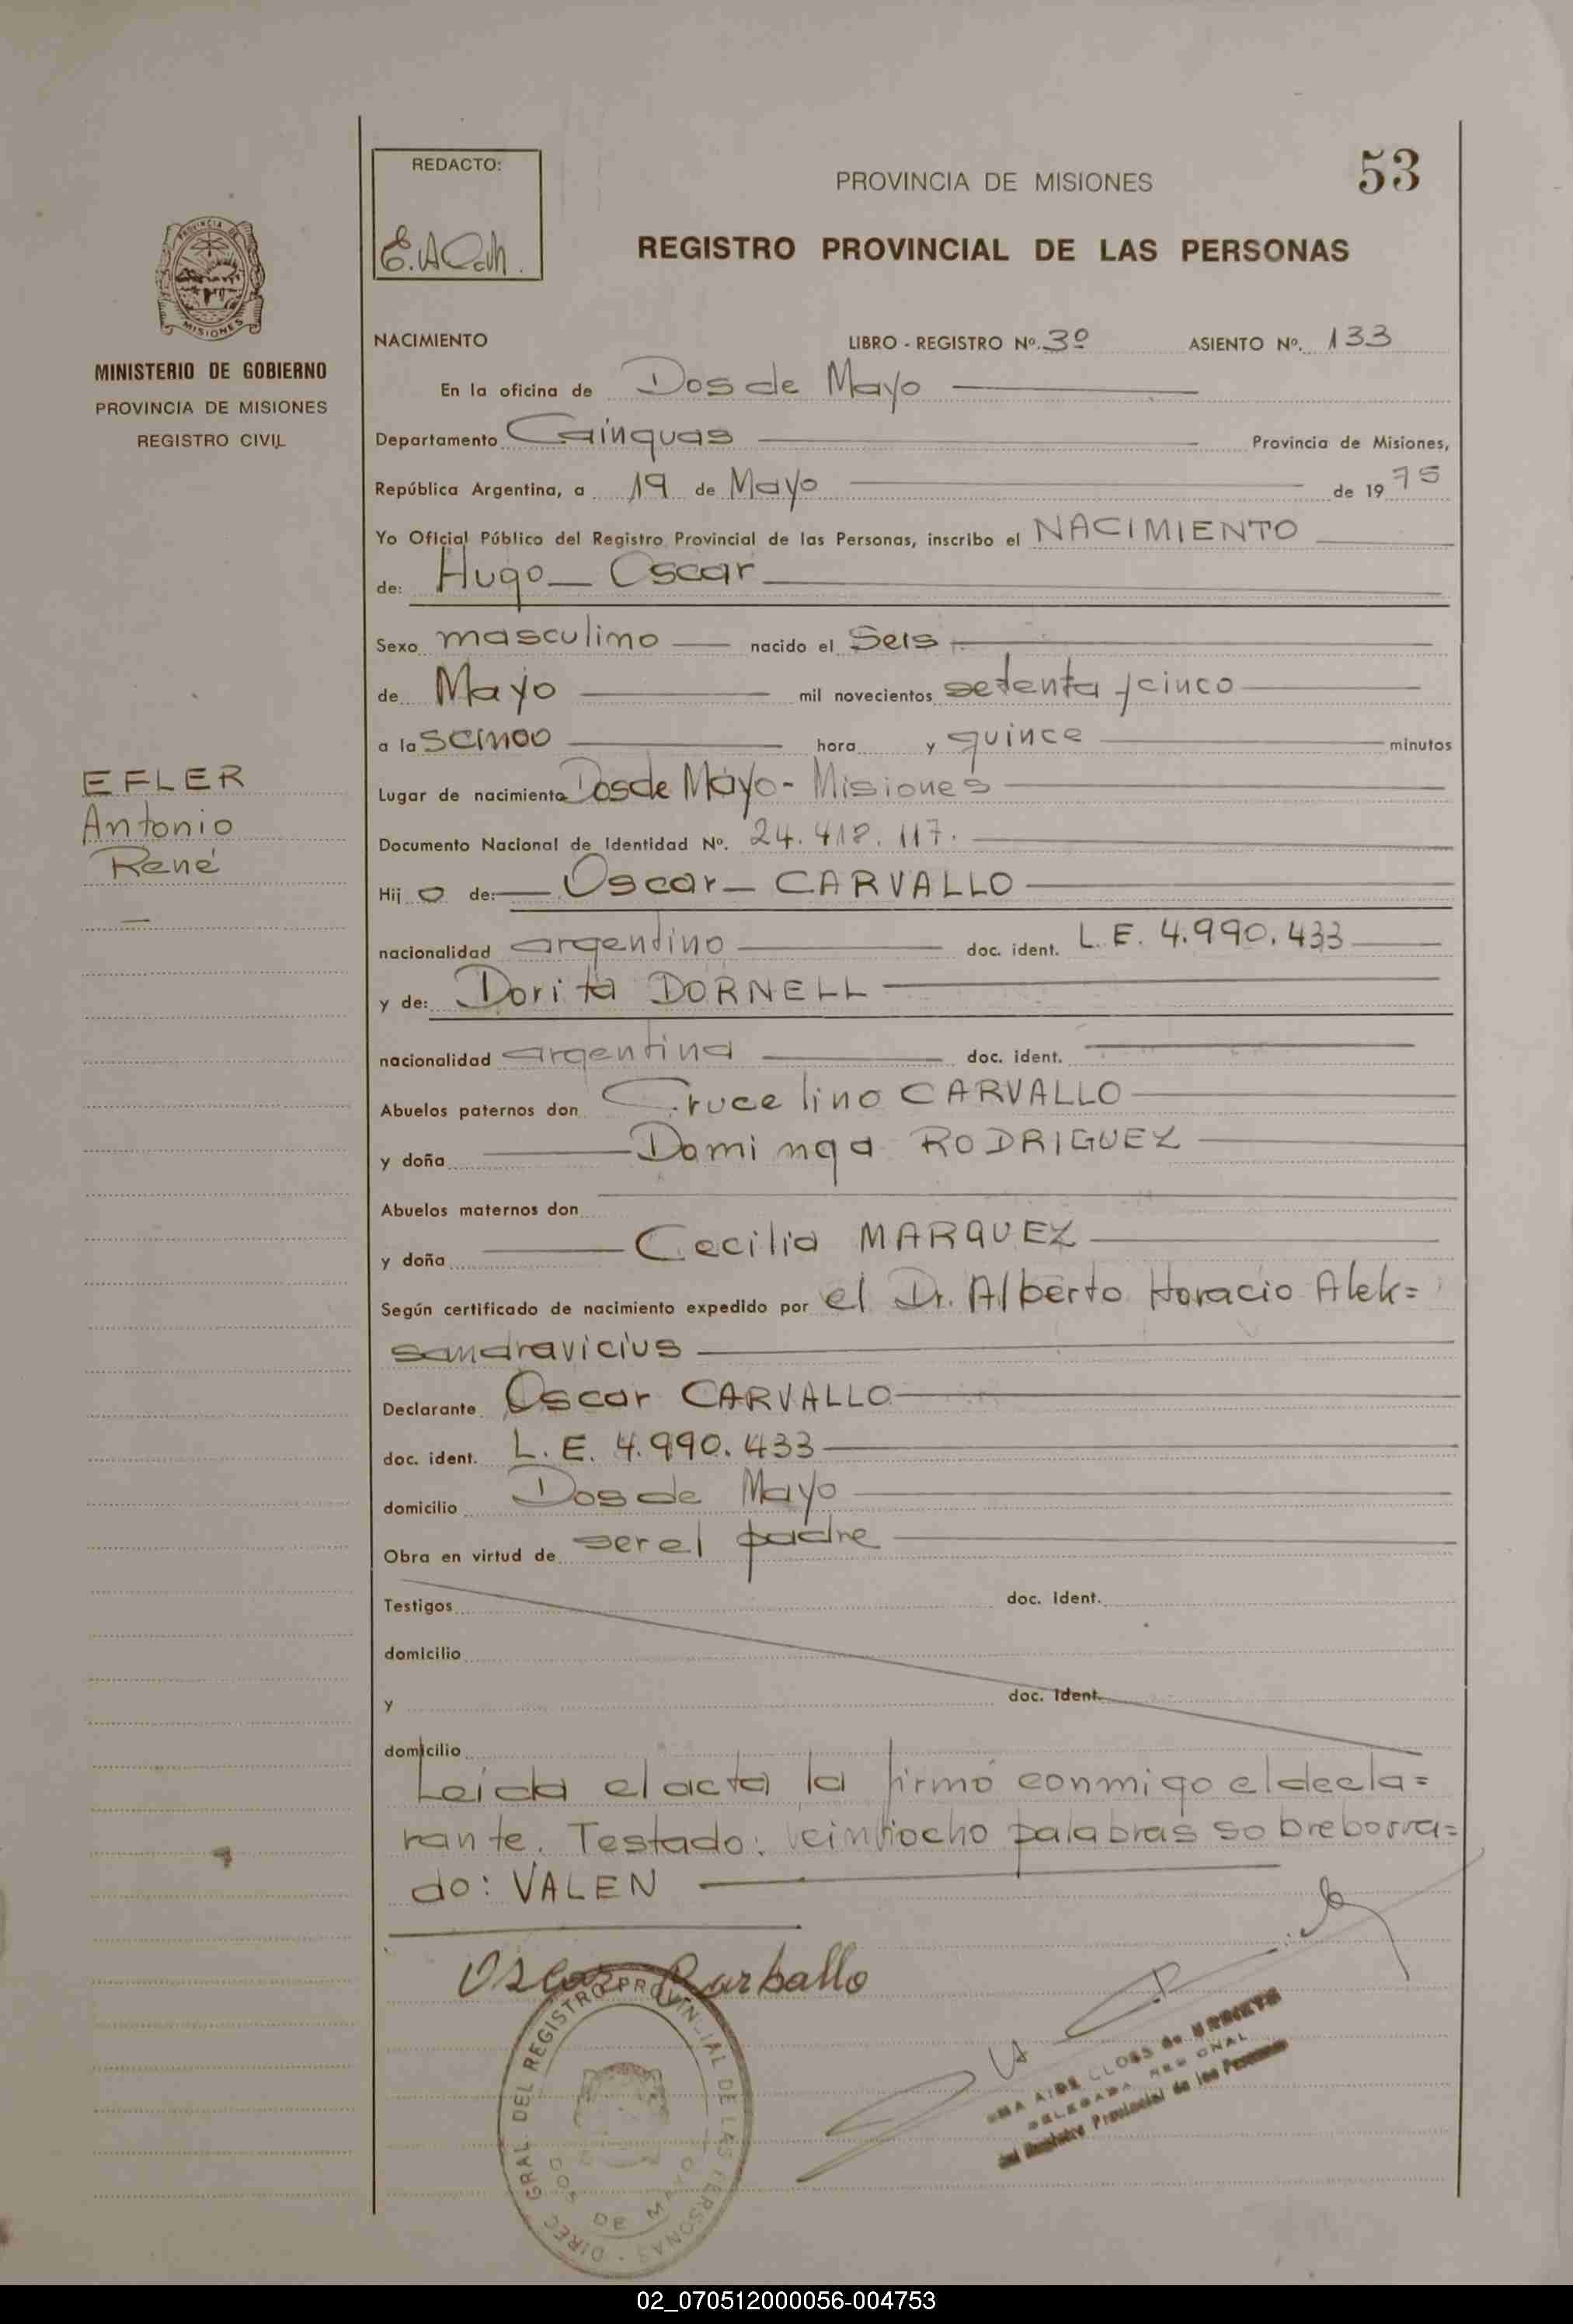 53
REDACTO:
PROVINCIA DE MISIONES
REGISTRO PROVINCIAL DE LAS PERSONAS
PROVINCIA DE
MISIONES
MINISTERIO DE GOBIERNO
PROVINCIA DE MISIONES
REGISTRO CIVIL
NACIMIENTO LIBRO - REGISTRO Nº. 3º ASIENTO Nº. 133
En la oficina de Dos de Mayo
Departamento Cainguas Provincia de Misiones,
República Argentina, a 19 de Mayo de 19 75
Yo Oficial Público del Registro Provincial de las Personas, inscribo el NACIMIENTO
de: Hugo Oscar
Sexo masculino nacido el Seis
de Mayo mil novecientos setenta y cinco
a la s cinco hora y quince minutos
EFLER
Antonio
René
Lugar de nacimiento Dos de Mayo - Misiones
Documento Nacional de Identidad Nº. 24.418.117.
Hij o de: Oscar CARVALLO
nacionalidad argentino doc. ident. L.E. 4.990.433
y de: Dorita DORNELL
nacionalidad argentina doc. ident.
Abuelos paternos don Crucelino CARVALLO
y doña Dominga RODRIGUEZ
Abuelos maternos don
y doña Cecilia MARQUEZ
Según certificado de nacimiento expedido por el Dr. Alberto Horacio Alek=
sandravicius
Declarante Oscar CARVALLO
doc. ident. L.E. 4.990.433
domicilio Dos de Mayo
Obra en virtud de ser el padre
Testigos doc. Ident.
domicilio
y doc. Ident.
domicilio
Leida el acta la firmó conmigo el decla=
rante. Testado: veintiocho palabras sobreborra=
do: VALEN
Oscar Carballo
DIREC GRAL DEL REGISTRO PROVINCIAL DE LAS PERSONAS
DOS DE MAYO
AIDE CLOSS de URRIETA
DELEGADA REGIONAL
del Registro Provincial de las Personas
02_070512000056-004753